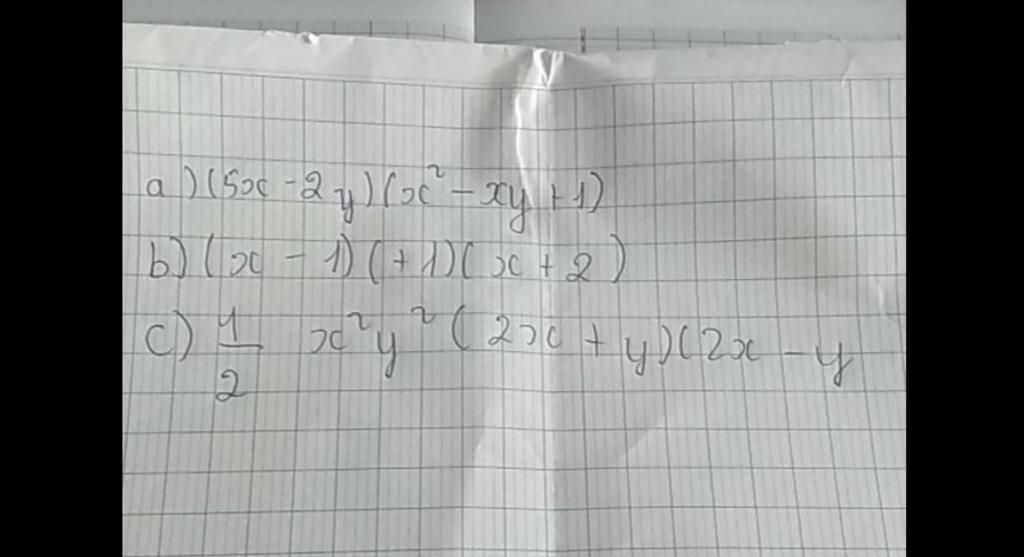 a) (5x - 2y) (x² - xy + 1)
b) (x - 1) (+ 1) (x + 2)
c) 1/2 x²y² (2x + y) (2x - y